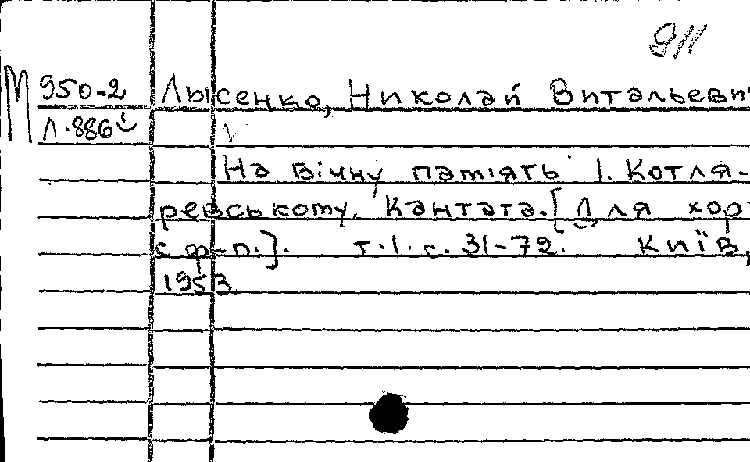 911
М 950-2 Лысенко, Николай Витальеви
Л.886
На вічну пам'ять І. Котля-
ревському. Кантата. [Для хор
с ф-п.]. т.1. с. 31-72. Київ,
1953